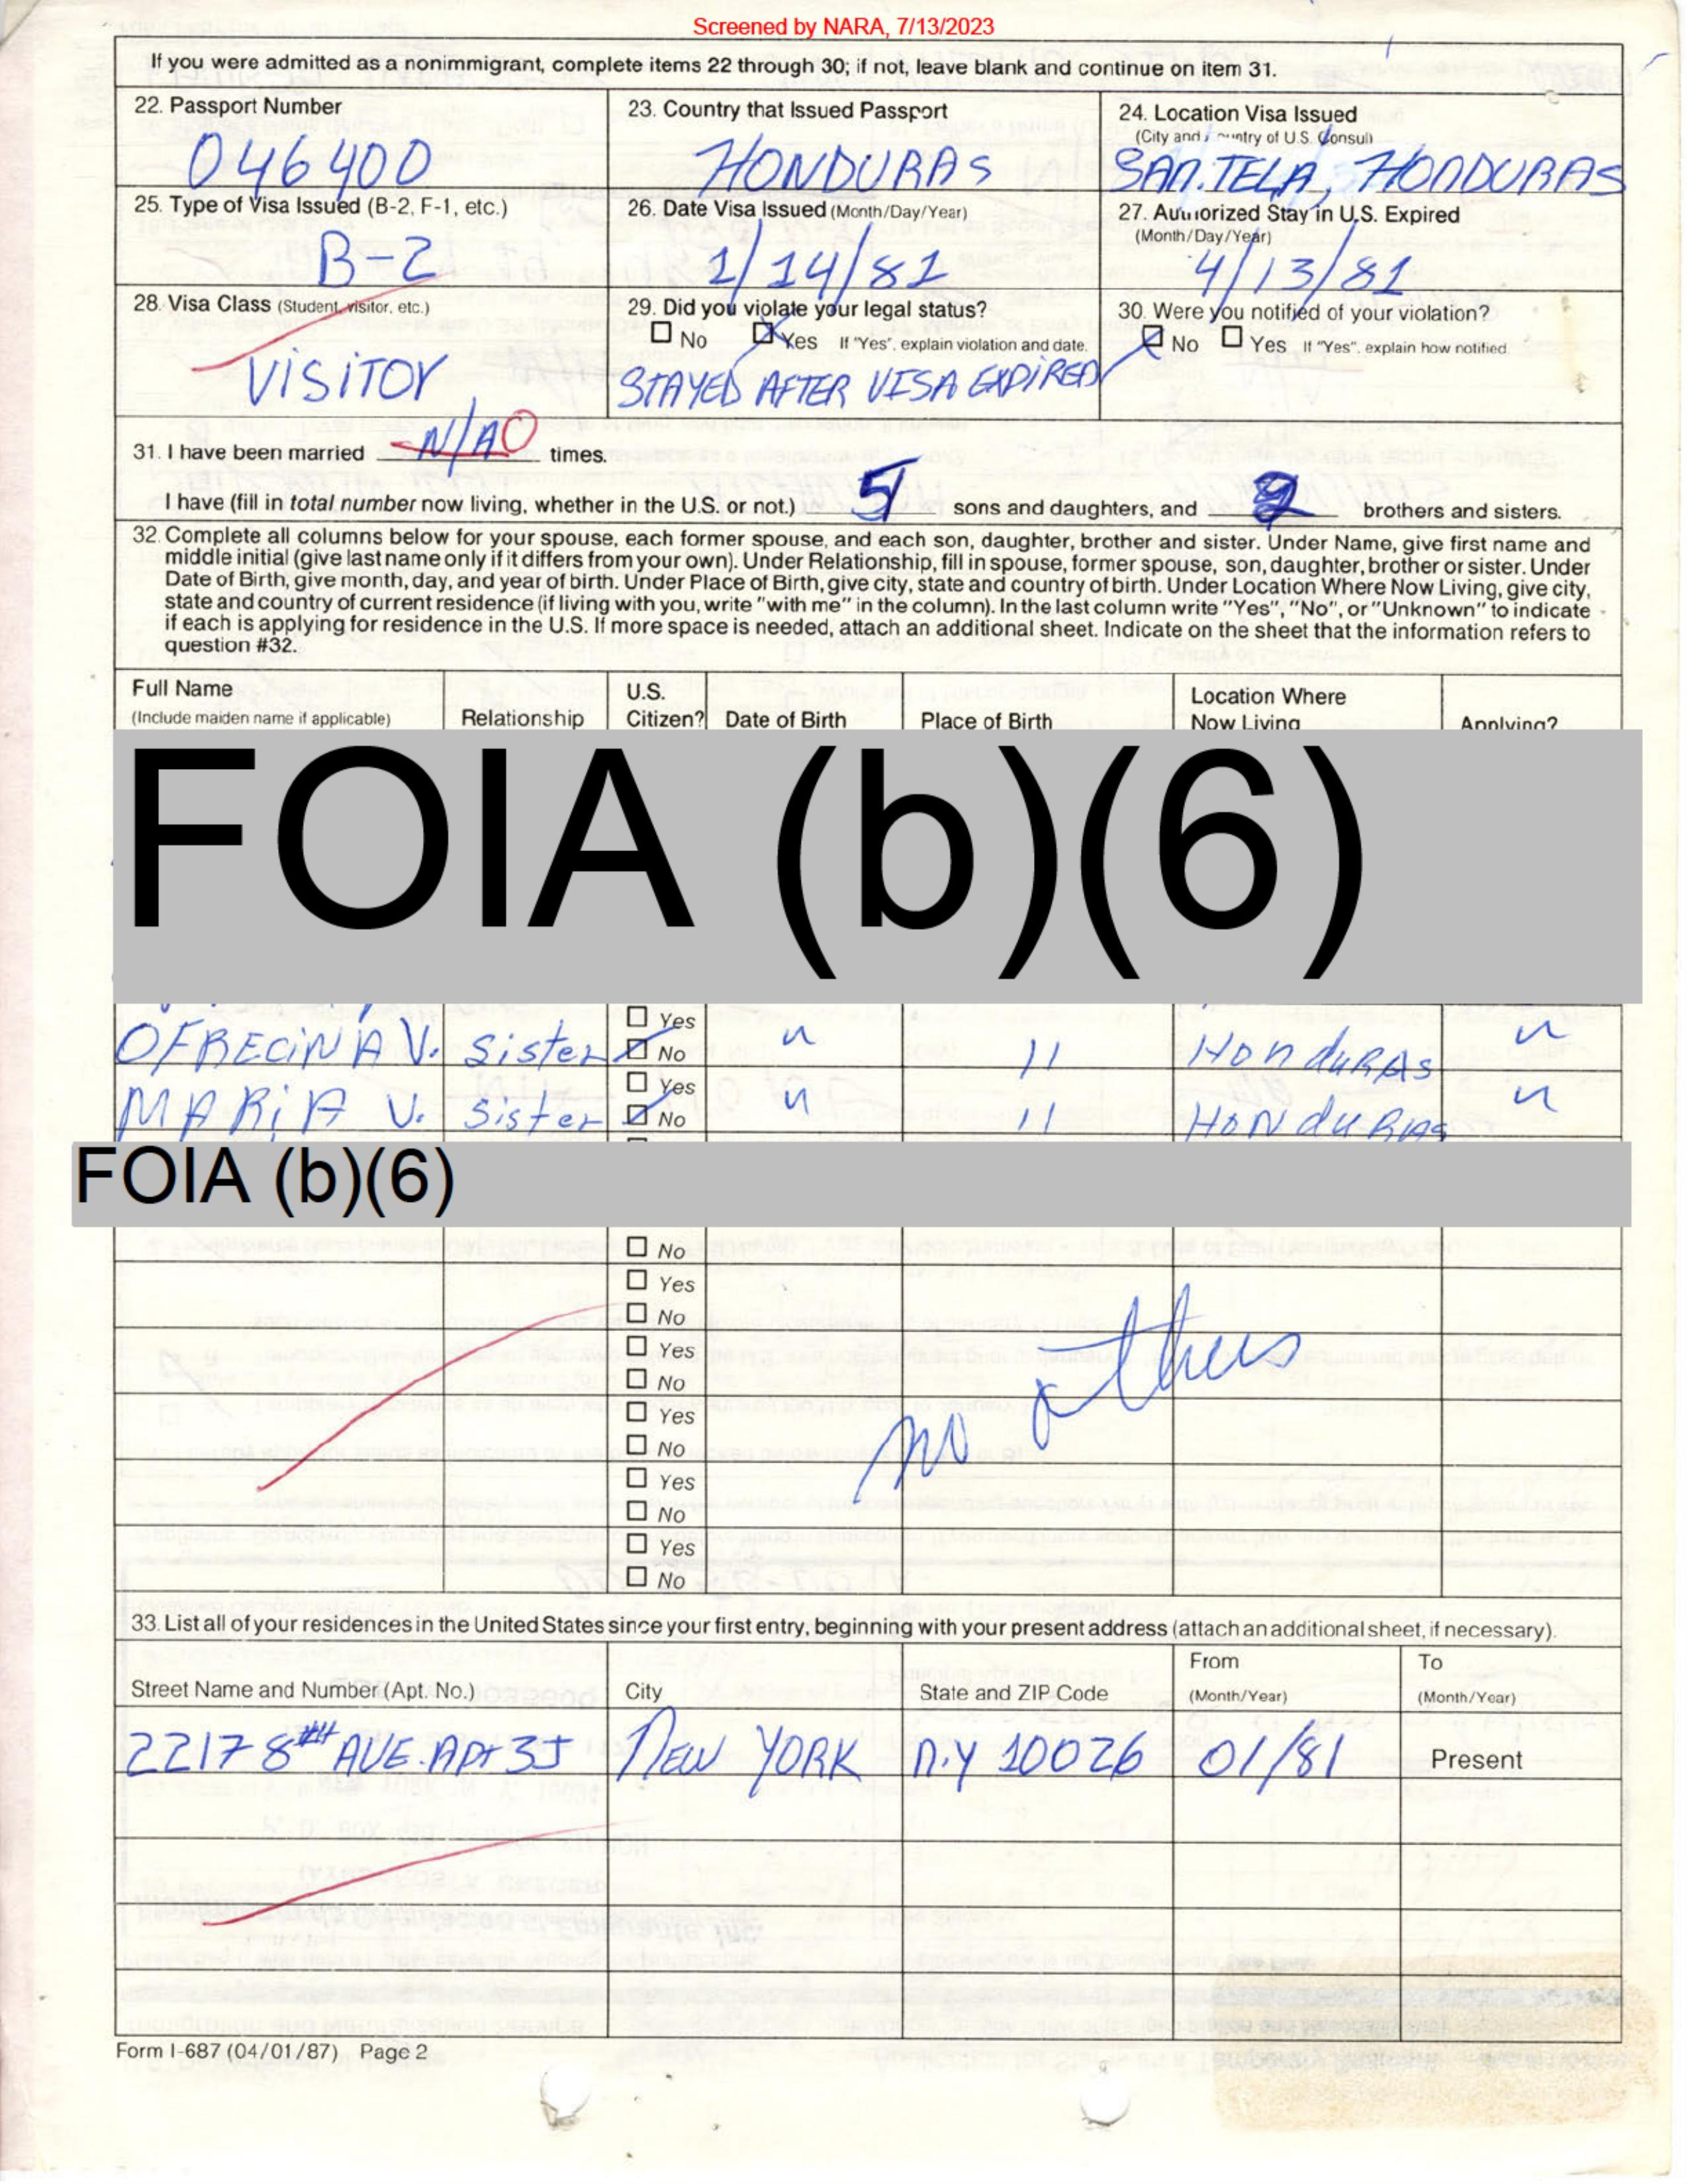 Screened by NARA, 7/13/2023
If you were admitted as a nonimmigrant, complete items 22 through 30; if not, leave blank and continue on item 31.
22. Passport Number
046400
23. Country that Issued Passport
HONDURAS
24. Location Visa Issued
(City and Country of U.S. Consul)
SAN.TELA, HONDURAS
25. Type of Visa Issued (B-2, F-1, etc.)
B-2
26. Date Visa Issued (Month/Day/Year)
1/14/81
27. Authorized Stay in U.S. Expired
(Month/Day/Year)
4/13/81
28. Visa Class (Student, visitor, etc.)
VISITOR
29. Did you violate your legal status?
No Yes If "Yes", explain violation and date.
STAYED AFTER VISA EXPIRED
30. Were you notified of your violation?
No Yes If "Yes", explain how notified
31. I have been married N/A 0 times.
I have (fill in total number now living, whether in the U.S. or not.) 5 sons and daughters, and brothers and sisters.
32. Complete all columns below for your spouse, each former spouse, and each son, daughter, brother and sister. Under Name, give first name and
middle initial (give last name only if it differs from your own). Under Relationship, fill in spouse, former spouse, son, daughter, brother or sister. Under
Date of Birth, give month, day, and year of birth. Under Place of Birth, give city, state and country of birth. Under Location Where Now Living, give city,
state and country of current residence (if living with you, write "with me" in the column). In the last column write "Yes", "No", or "Unknown" to indicate
if each is applying for residence in the U.S. If more space is needed, attach an additional sheet. Indicate on the sheet that the information refers to
question #32.
Full Name
(Include maiden name if applicable)
Relationship
U.S.
Citizen?
Date of Birth
Place of Birth
Location Where
Now Living
Applying?
FOIA (b)(6)
OFRECINA V. Sister Yes No " 11 HONDURAS "
MARIA V. Sister Yes No " 11 HONDURAS "
FOIA (b)(6)
No
Yes
No
Yes
No
Yes
No
Yes
No
Yes
No
no others
33. List all of your residences in the United States since your first entry, beginning with your present address (attach an additional sheet, if necessary).
Street Name and Number (Apt. No.)
City
State and ZIP Code
From
(Month/Year)
To
(Month/Year)
2217 8TH AVE. APT 3J NEW YORK N.Y 10026 01/81 Present
Form I-687 (04/01/87) Page 2